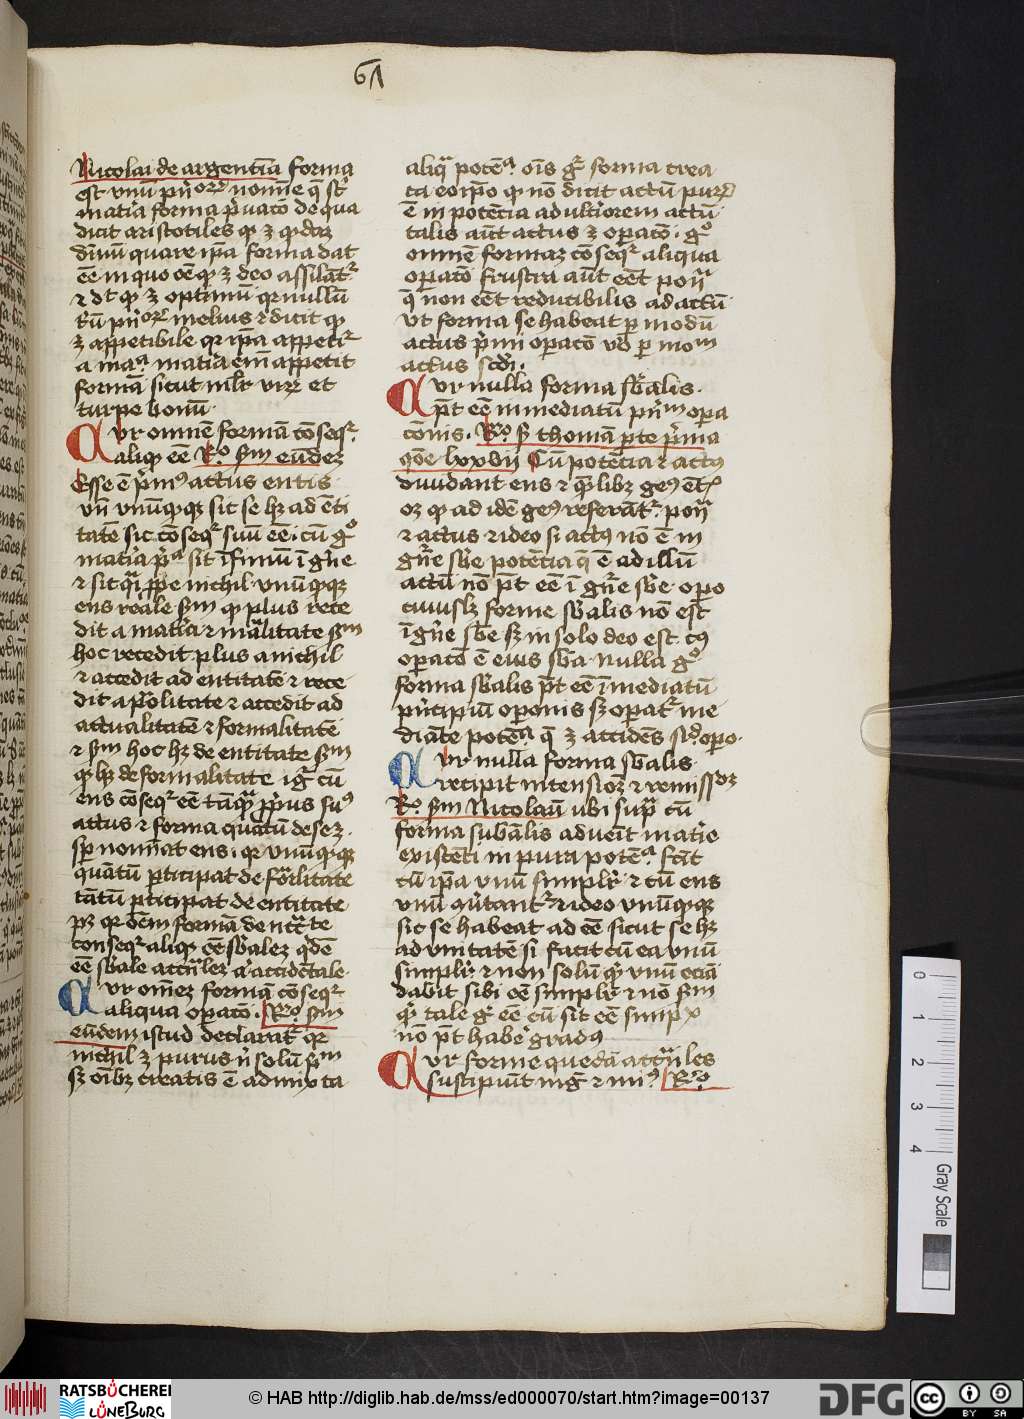 61
Nicolai de argentīa forma
est vnū pn̄orꝝ nomīe q̄ st̄
matīa forma p̄uacō de qua
dicit aristotiles ꝙ ꝫ
dīnū quare ip̄a forma dat
ēē in quo ōē ꝙ ꝫ deo assilāt᷑
⁊ dt ꝙ ꝫ optimū qr nullū
melius ⁊ dicit ꝙ
ꝫ appetibile qr ip̄a appetit᷑
a maᵃ matīa em̄ appetit
formā sicut mlr virꝫ et
turpe bonū
Vr omnē formā cōseqr᷑
aliqꝫ ēē Rº sm̄ eūdeꝫ
Esse ē p̄mꝰ actus entis
vn̄ vnūqꝫqꝫ sic se hꝫ ad ēti
tatē sic cōseqr᷑ suū ēē cū gº
matīa p̄ᵃ sit īfimū ī gn̄e
⁊ sit qͣi ꝓpe nichil vnūqꝫqꝫ
ens reale sm̄ ꝙ plus rece
dit a matīa ⁊ mālitate sm̄
hoc recedit plus a nichil
⁊ accedit ad entitatē ⁊ rece
dit a potītate ⁊ accedit ad
actualitatē ⁊ formalitatē
⁊ sm̄ hoc hꝫ de entitate sm̄
ꝙ hꝫ de formalitate igr̄ cū
ens cōseqr᷑ ēē tāqͣꝫ ꝓprius suꝰ
actus ⁊ forma quātū de se ꝫ
sp̄ nomīat ens qr vnūqꝫqꝫ
quātū ꝑticipat de formlitate
tātū ꝑticipat de entitate
pꝫ qr oēm formā de nctͣte
conseqr᷑ aliqꝫ ēē sb̄aleꝫ qdē
ēē sb̄ale acciāleꝫ accidētale
Vr omēꝫ formā cōseqr᷑
aliqua operacō Rº sm̄
eūdem istud declarat᷑ qr
nichil ꝫ purus n̄ solū pm̄
sꝫ oībꝫ creatis ē admixta
aliqͣ potēᵃ oīs gͥ forma crea
ta eo ip̄o ꝙ nō dicit actū purū
ē in potēcia ad ultīorem actū
talis aūt actus ꝫ operacō gº
omnē formaꝫ cōseqr᷑ aliqua
operacō frustra aūt eēt ponͣ
q̄ non eēt reducibilis ad actū
vt forma se habeat ꝑ modū
actus p̄mi operacō vº ꝑ mom
actus scdi
Vr nulla forma sb̄alis
pt̄ ēē inmediatū pn̄m opera
cōnis Rº s thomā pte p̄ma
qōe lxxvii Cū potēcia ⁊ actꝰ
diuidant ens ⁊ qͣlibꝫ genꝰ ent᷑
oꝫ ꝙ ad idē genꝰ referāt᷑ ponͣ
⁊ actus ⁊ ideo si actꝰ nō ē in
gn̄e sb̄e potēcia q̄ ē ad illū
actū nō pt̄ ēē ī gn̄e sb̄e opo
cuiuslꝫ forme sb̄alis nō est
ī gn̄e sb̄e sꝫ in solo deo est cꝰ
operacō ē eius sb̄a nulla gº
forma sb̄alis pt̄ ēē īmediatū
prīcipiū operōnis sꝫ operat᷑ me
diāte potēᵃ q̄ ꝫ accidēs sic opo
Vr nulla forma sb̄alis
recipit intensioꝫ ⁊ remissoꝫ
Rº sm̄ Nicolaū ubi supͣ cū
forma subālis adueīt matīe
existēti in pura potēᵃ facit
cū ip̄a vnū simplr̄ ⁊ cū ens
vnū ⁊ ideo vnūqꝫqꝫ
sic se habeat ad ēē sicut se hꝫ
ad vnitatē si facit cū ea vnū
simplr̄ ⁊ non solū qͣꝫ vnū eciā
dabit sibi ēē simplr̄ ⁊ nō sm̄
qͣ tale gͥ ēē cū sit ēē simpx
nō pt̄ habēˀ gradꝰ
Vr forme quedā acciāles
suscipiūt mḡ ⁊ miꝰ Rº
0
1
2
3
4
Gray Scale
RATSBÜCHEREI
LÜNEBURG
© HAB http://diglib.hab.de/mss/ed000070/start.htm?image=00137
DFG
cc BY SA